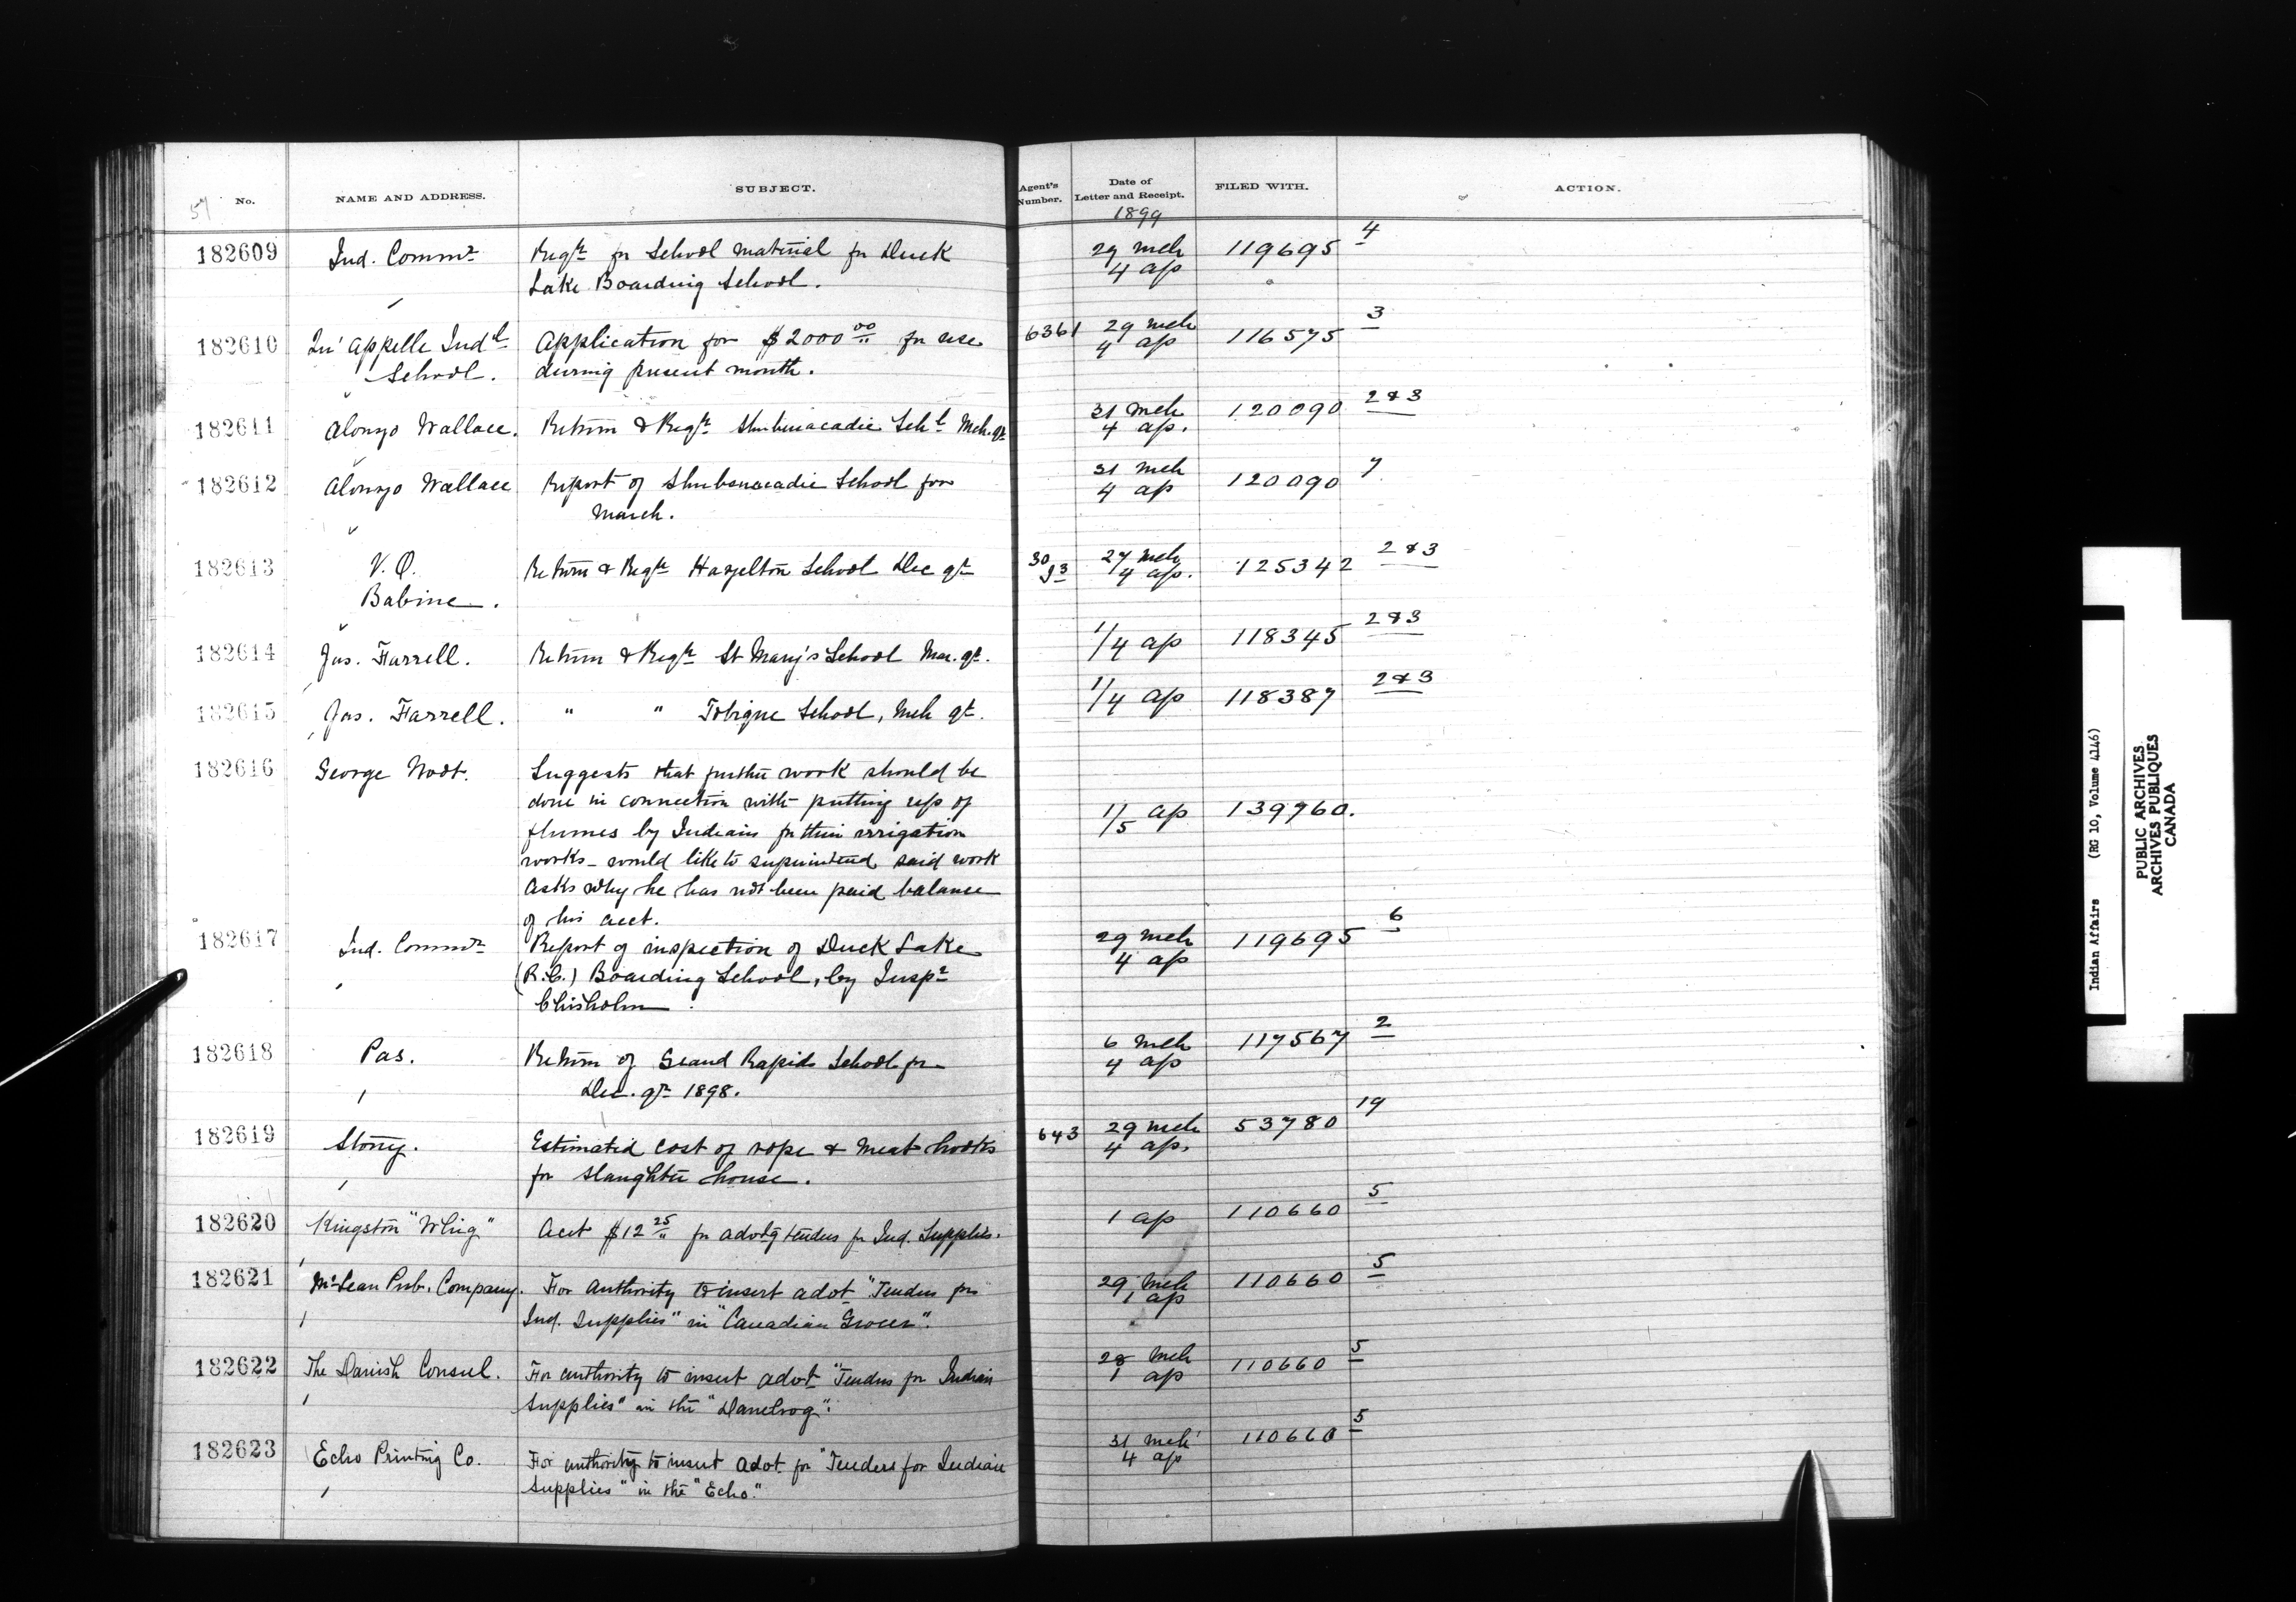 57 No. NAME AND ADDRESS. SUBJECT. Agent's Number. Date of Letter and Receipt. FILED WITH. ACTION.
1899
182609 Ind. Commr Reqn for School material for Duck 29 mch 119695 4
Lake Boarding School. 4 ap
182610 Qu'appelle Indl Application for $2000 00 for use 6361 29 mch 116575 3
School. during present month. 4 ap
182611 Alonzo Wallace. Return & Reqn Shubenacadie Schl Mch. qr 31 mch 120090 2 & 3
4 ap.
182612 Alonzo Wallace Report of Shubenacadie School for 31 mch 120090 7
March. 4 ap
182613 V. O. Return & Reqn Hazelton School Dec qr 30 J3 27 mch 125342 2 & 3
Babine. 4 ap.
182614 Jas. Farrell. Return & Reqn St Mary's School Mar. qr. 1/4 ap 118345 2 & 3
182615 Jas. Farrell. " " Tobique School, Mch qr. 1/4 ap 118387 2 & 3
182616 George Suggests that further work should be
done in connection with putting up of 1/5 ap 139760.
flumes by Indians for their irrigation
works - would like to superintend said work
Asks why he has not been paid balance
of his acct.
182617 Ind. Commr Report of inspection of Duck Lake 29 mch 119695 6
(R.C.) Boarding School, by Inspr 4 ap
Chisholm.
182618 Pas. Return of Grand Rapids School for 6 mch 117567 2
Dec. qr 1898. 4 ap
182619 Stony. Estimated cost of rope & meat hooks 643 29 mch 53780 19
for slaughter house. 4 ap.
182620 Kingston "Whig" Acct $12 25 for advtg tenders for Ind. Supplies. 1 ap 110660 5
182621 McLean Pub. Company. For authority to insert advt "Tenders for 29 mch 110660 5
Ind. Supplies" in "Canadian Grocer". 1 ap
182622 The Danish Consul. For authority to insert advt "Tenders for Indian 28 mch 110660 5
Supplies" in the "Danebrog". 1 ap
182623 Echo Printing Co. For authority to insert advt. for "Tenders for Indian 31 mch 110660 5
Supplies" in the "Echo." 4 ap
Indian Affairs (RG 10, Volume 4146)
PUBLIC ARCHIVES
ARCHIVES PUBLIQUES
CANADA